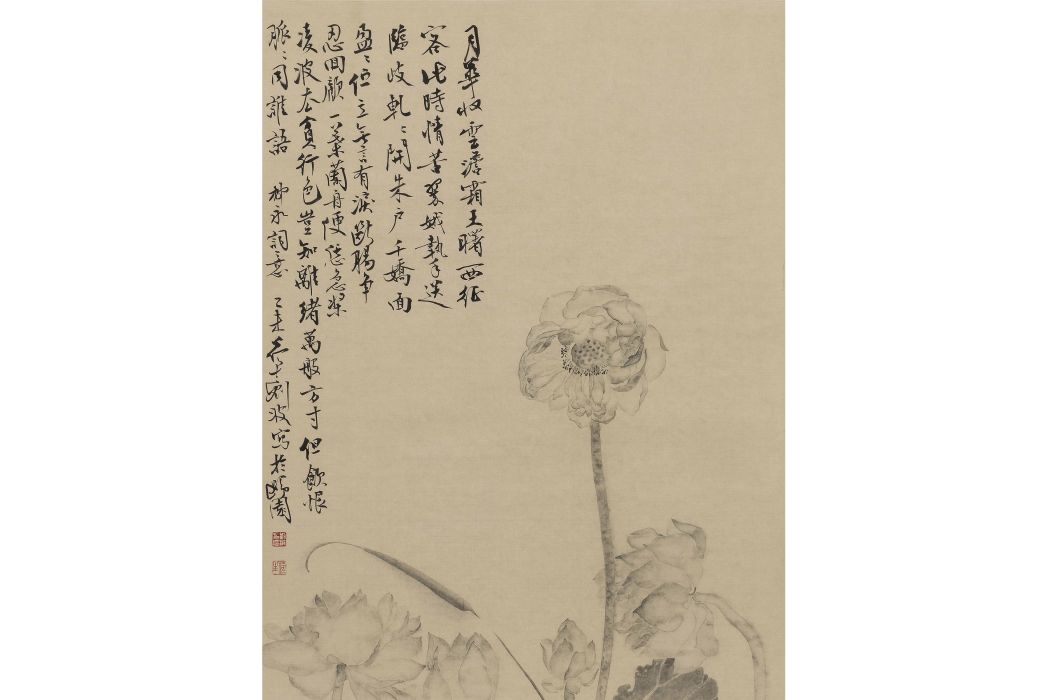 月華收雲澹霜天曙西征
客此時情苦翠娥執手送
臨歧軋〻開朱户千嬌面
盈〻伫立無言有淚斷腸争
忍回顧一葉蘭舟便恁急槳
凌波去貪行色豈知離緒萬般方寸但飲恨
脈〻同誰語 柳永詞意 乙未 劉波寫於 園